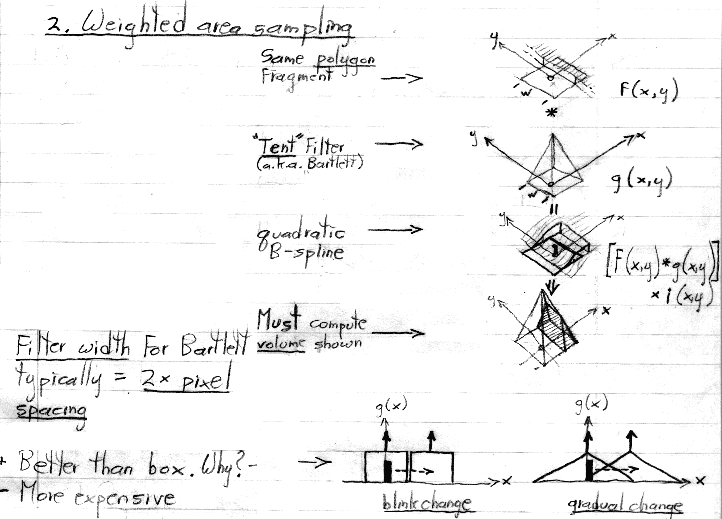 2. Weighted area sampling
Same polygon
Fragment
y
x
w
F(x,y)
*
"Tent" Filter
(a.k.a. Bartlett)
y
x
w
g(x,y)
=
quadratic
B-spline
y
x
[F(x,y)*g(x,y)]
× i(x,y)
Must compute
volume shown
y
x
Filter width For Bartlett
typically = 2× pixel
spacing
+ Better than box. Why? -
- More expensive
g(x)
x
blink change
g(x)
x
gradual change